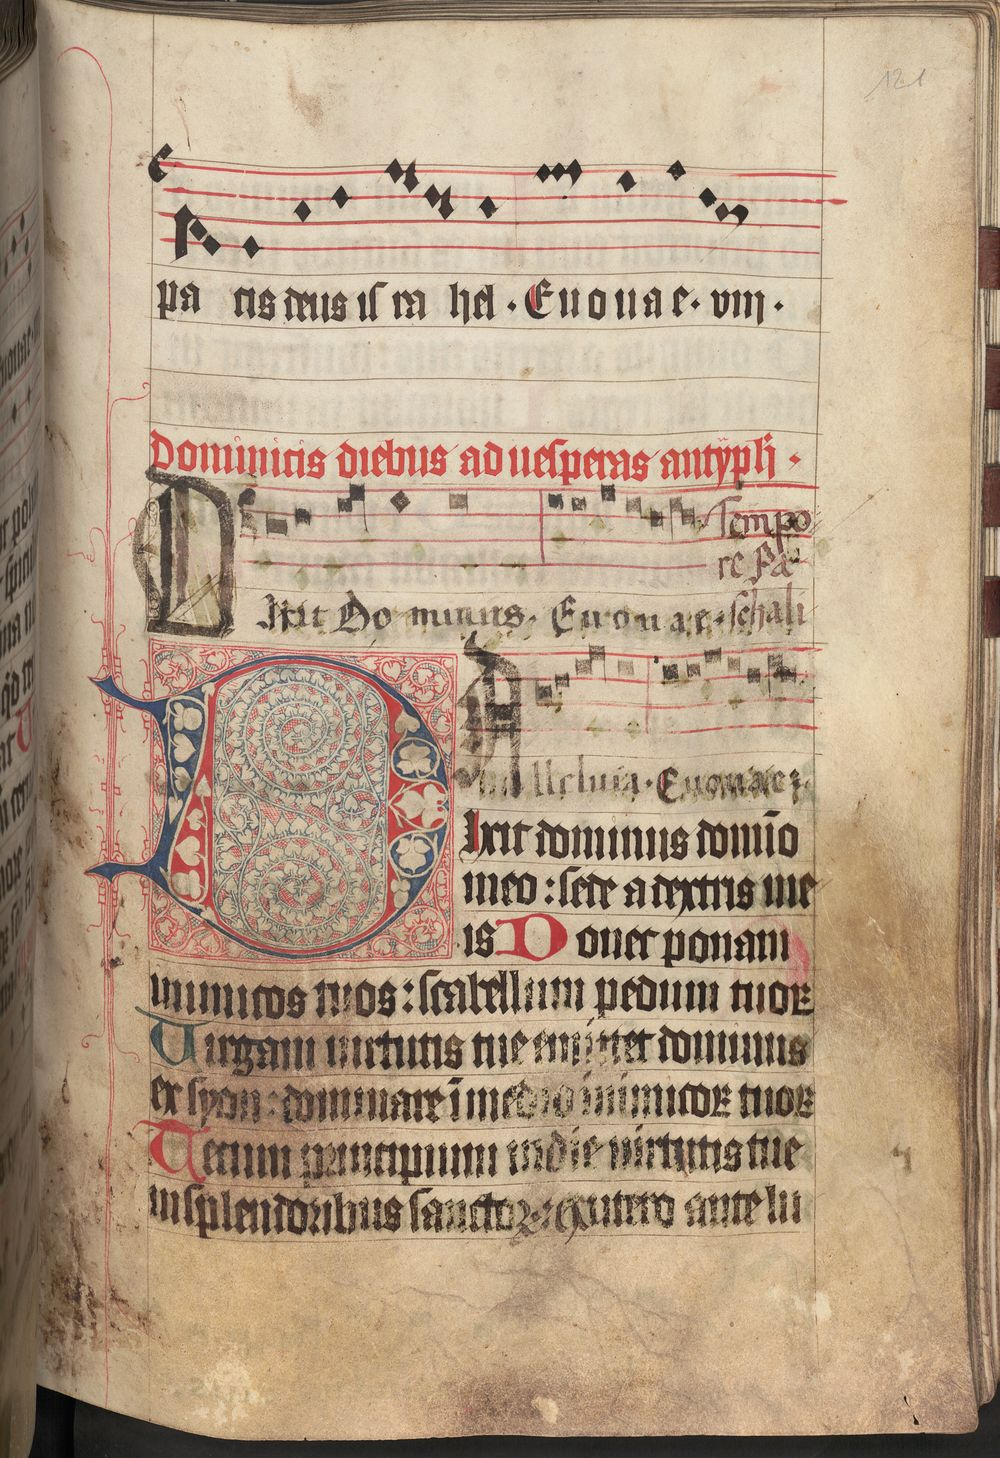 121
pa tis deus isra hel · Euouae · viii ·
Dominicis diebus ad uesperas antyph ·
Tempo
re Pa
Dixit Do minus. Euouae · schali
Alleluia · Euouae
Dixit dominus domīo
meo : sede a dextris me
is Donec ponam
inimicos tuos : scabellum pedum tuoꝝ
Uirgam uirtutis tue emittet dominus
ex syon : dominare ī medio inimicoꝝ tuoꝝ
Tecum principium in die uirtutis tue
in splendoribus sanctoꝝ : ex utero ante lu